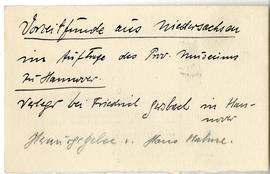 Vorzeitfunde aus Niedersachsen
im Auftrage des Prov. Museums
zu Hannover.
Verlag bei Friedrich Gersbach in Han-
nover
Herausgegeben v. Hans Hahne.